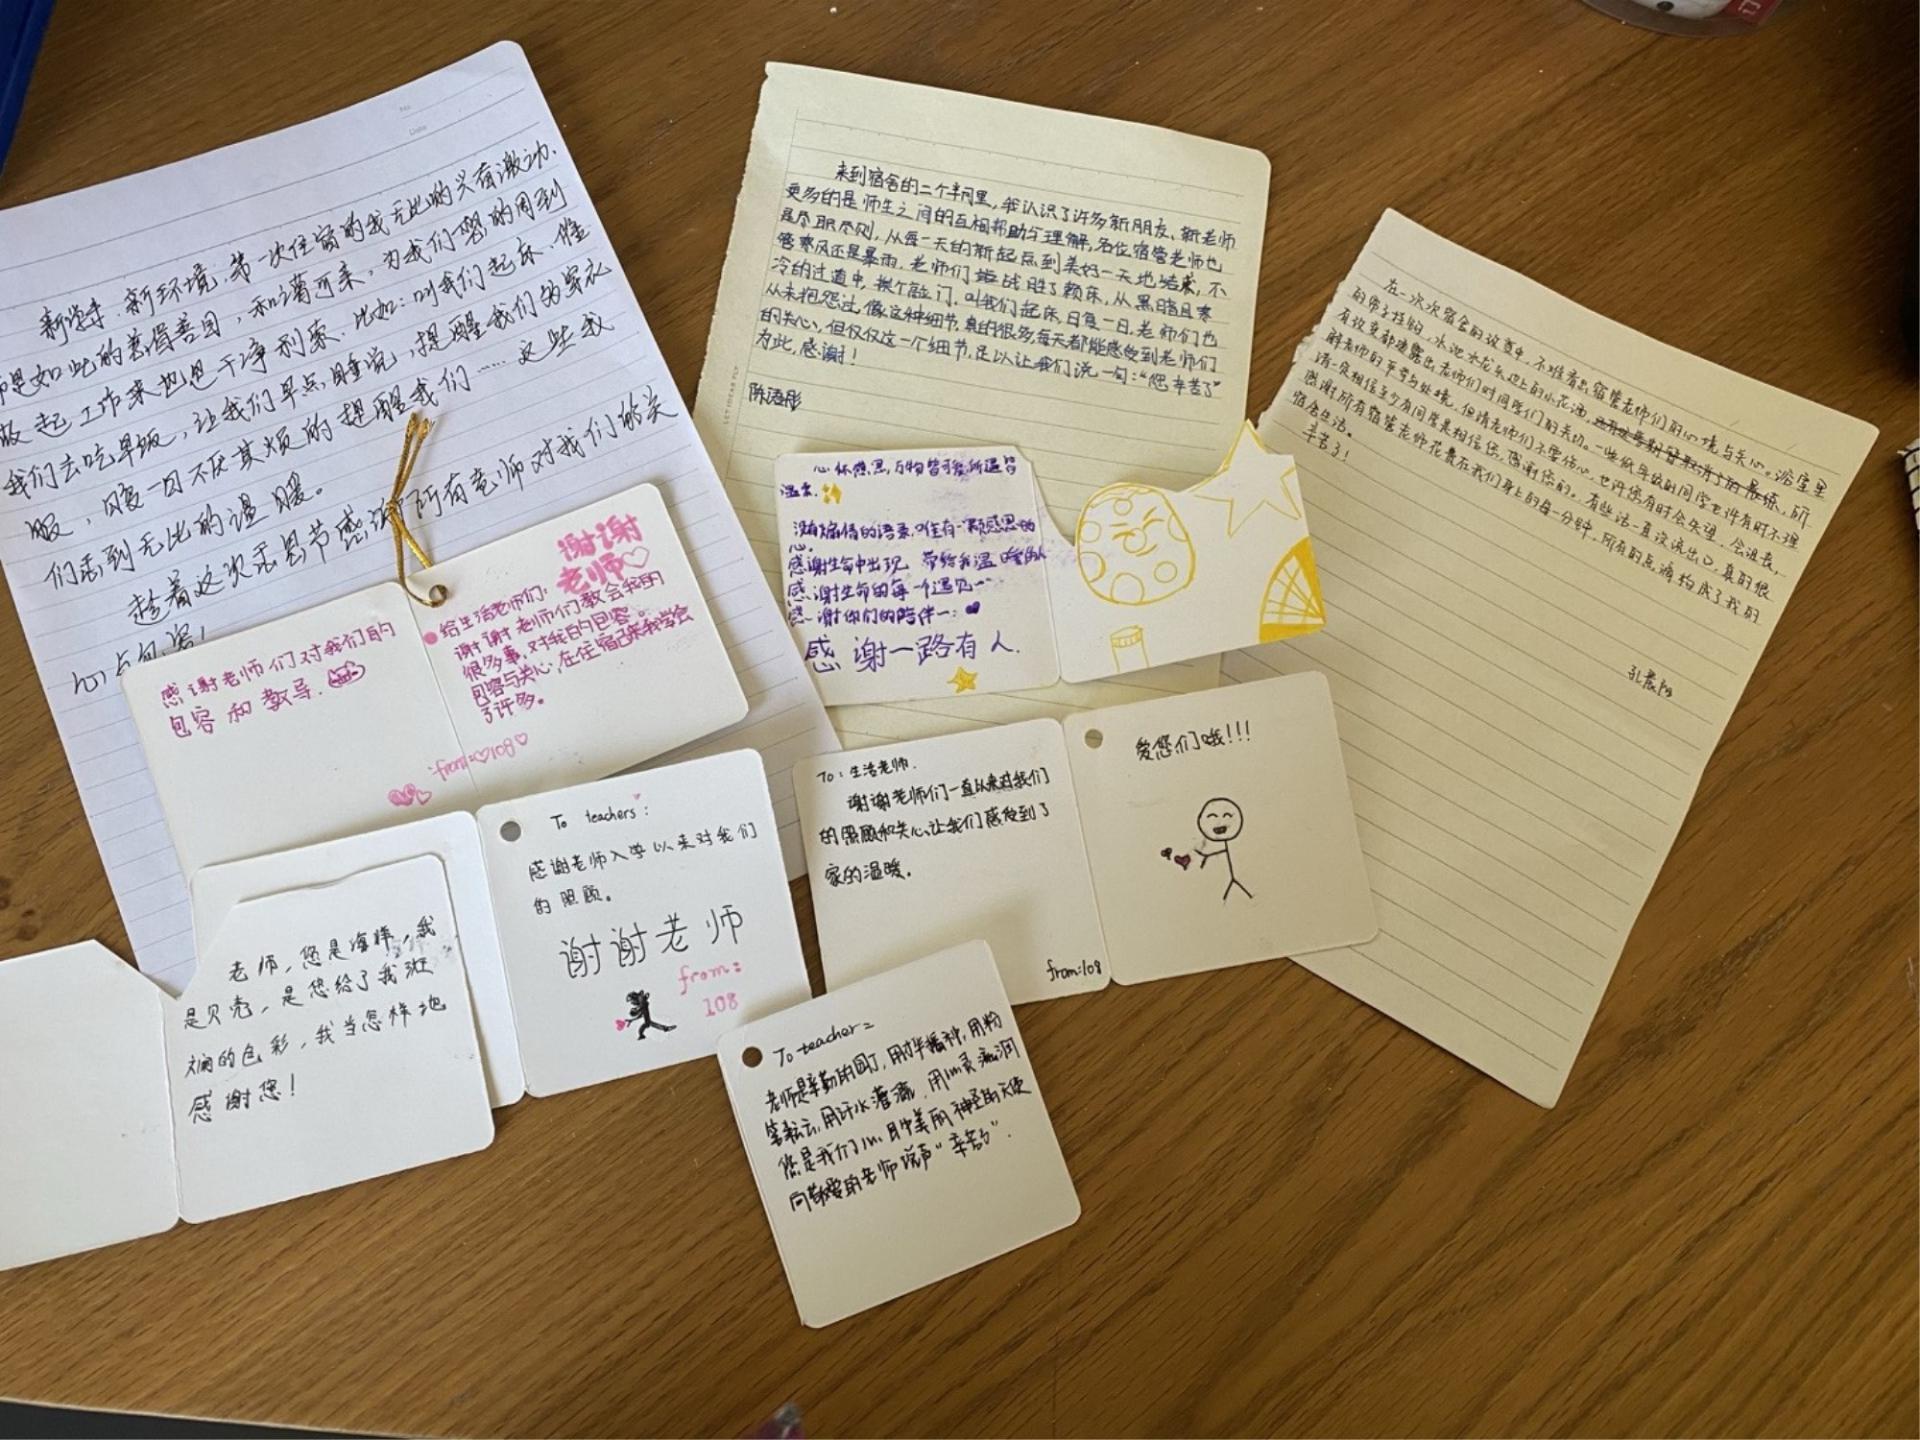 No.
Date
新学期、新环境、第一次住宿的我无比的兴奋激动.
师是如此的慕得善因,和蔼可亲,为我们想的周到
做起工作来也是干净利索.比如:叫我们起床、催
我们去吃早饭,让我们早点睡觉,提醒我们的穿衣
服,日复一日不厌其烦的提醒我们……这些我
们感到无比的温暖。
趁着这次感恩节感谢所有老师对我们的关
心与包容!
来到宿舍的二个半月里,我认识了许多新朋友、新老师
更多的是师生之间的互相帮助与理解,各位宿管老师也
是尽职尽则,从每一天的新起点到美好一天地结束,不
管寒风还是暴雨,老师们战胜了赖床,从黑暗且寒
冷的过道中,挨个敲门,叫我们起床,日复一日,老师们也
从未抱怨过,像这种细节,真的很多,每天都能感受到老师们
的关心,但仅仅这一个细节,足以让我们说一句:“您辛苦了”
为此,感谢!
LET IDEAS FLY
在一次次宿舍的改变中,不难看出宿管老师们的心境与关心。浴室里
的帘子挂钩,水池水龙头边上的小花洒,所
有改变都透露出老师们对同学们的关切。一些低年级的同学也许有时不理
解老师的辛劳与处境,但请老师们不要伤心,也许您有时会失望,会沮丧,
请一定相信至少有同学是相信您,感谢您的。有些话一直没说出口,真的很
感谢所有宿管老师花费在我们身上的每一分钟,所有的点滴构成了我的
宿舍生活。
辛苦了!
谢谢
老师♡
感谢老师们对我们的
包容和教导.
给生活老师们:
谢谢老师们教会我的
很多事,对我的包容。
包容与关心,在住宿后来我学会
了许多。
from:♡108♡
心怀感恩,万物皆可爱,所遇皆
温柔.
没有煽情的语录,唯有一颗感恩的
心.
感谢生命中出现 带给我温暖的人
感谢生命的每一个遇见…
感谢你们的陪伴一:
感谢一路有人.
To:生活老师.
谢谢老师们一直以来对我们
的照顾和关心,让我们感受到了
家的温暖。
from:108
爱您们哦!!!
To teachers:
感谢老师入学以来对我们
的照顾。
谢谢老师
from:
108
老师,您是海洋,我
是贝壳,是您给了我斑
斓的色彩,我当怎样地
感谢您!
To teacher:
老师是辛勤的园丁,用才华播种,用粉
笔耘云,用汗水灌溉,用心灵滋润
您是我们心目中美丽神圣的天使
向敬爱的老师说声“辛苦了”.